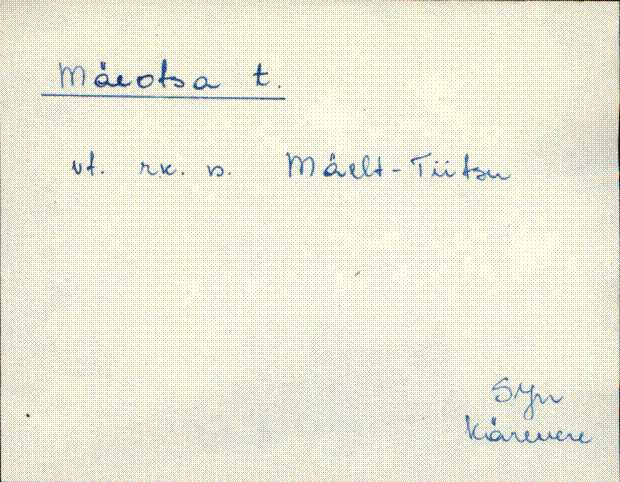 Mäeotsa t.
vt. rk. s. Mäelt-Tiitsu
SJn
Kärevere